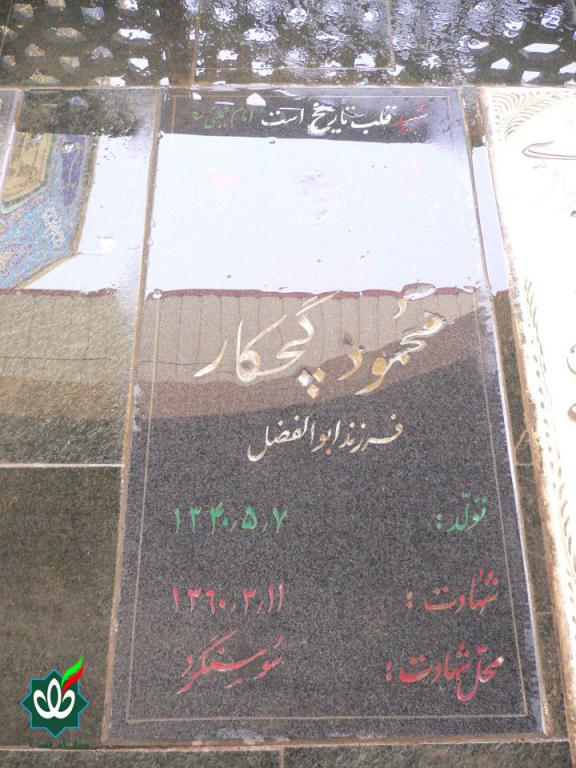 شهید قلب تاریخ است امام خمینی ره
محمود گچکار
فرزند ابوالفضل
تولّد: ۱۳۴۰٫۵٫۷
شهادت: ۱۳۶۰٫۳٫۱۱
محلّ شهادت: سوسنگرد